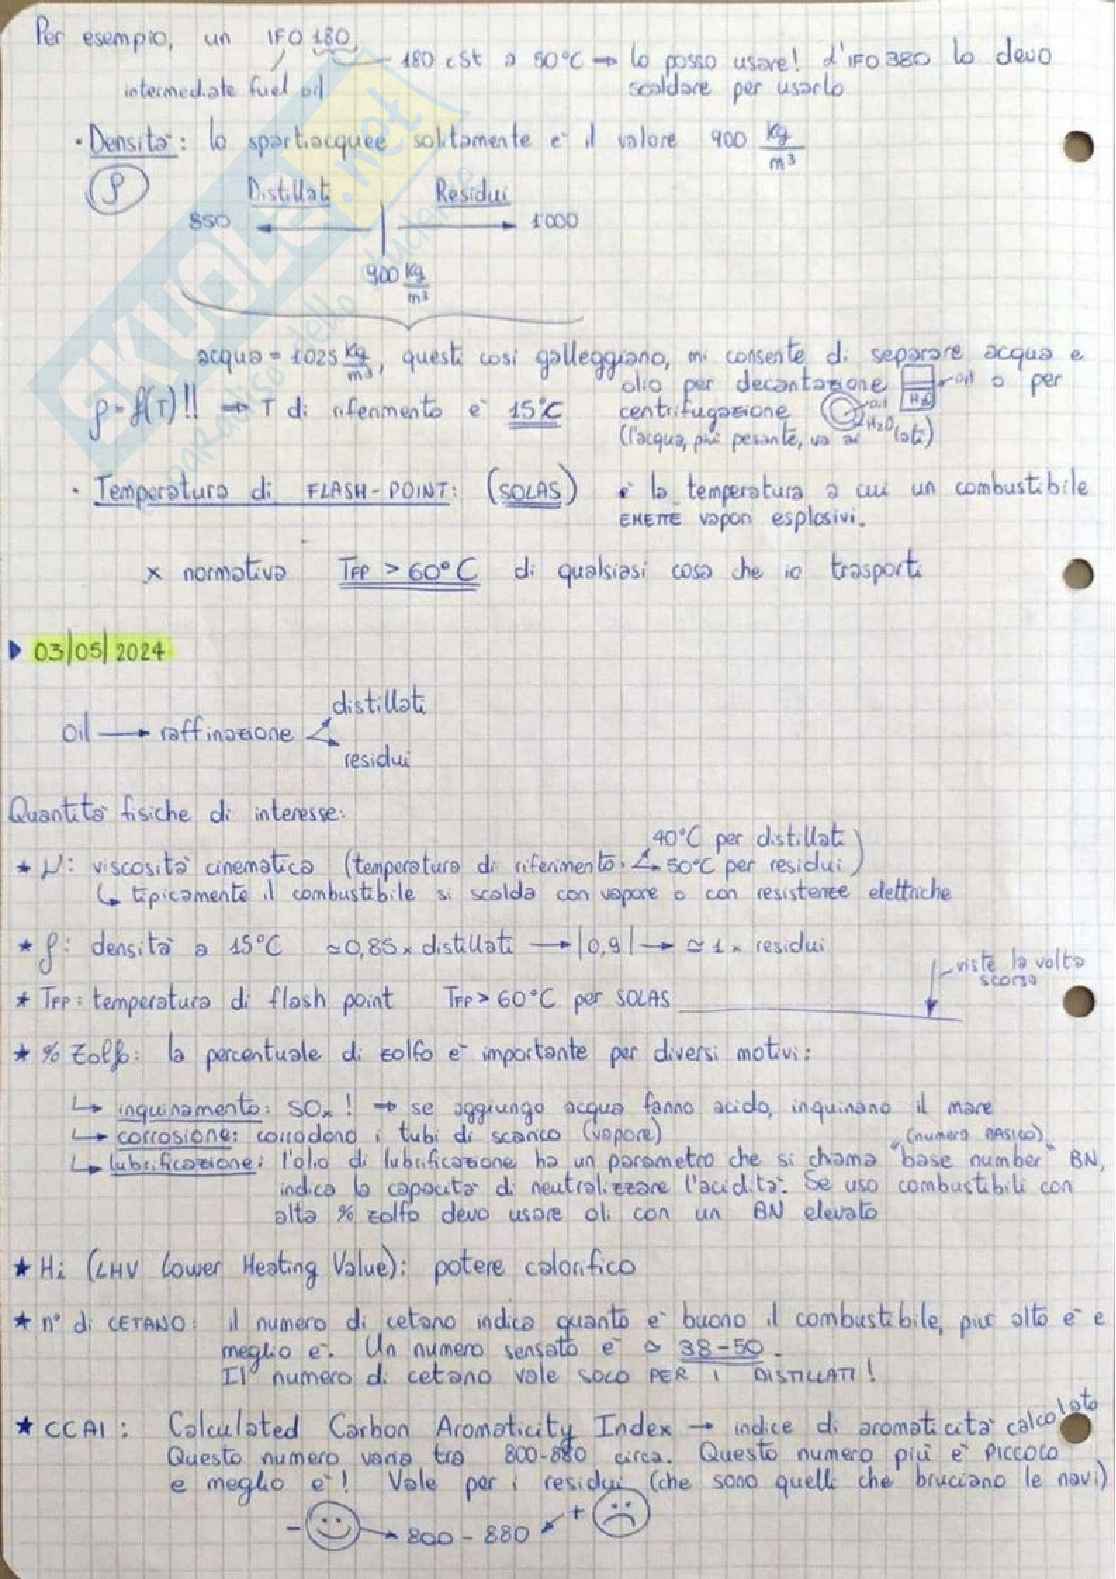 Per esempio, un IFO 180,
180 cSt a 50°C → lo posso usare! L'IFO 380 lo devo
intermediate fuel oil scaldare per usarlo
• Densità: lo spartiacquee solitamente è il valore 900 Kg/m³
ρ Distillati Residui
850 1000
900 Kg/m³
acqua = 1025 Kg/m³, questi così galleggiano, mi consente di separare acqua e
olio per decantazione oil H₂O o per
ρ = f(T)!! → T di riferimento è 15°C centrifugazione oil H₂O
(l'acqua, più pesante, va ai lati)
• Temperatura di FLASH-POINT: (SOLAS) è la temperatura a cui un combustibile
EMETTE vapori esplosivi.
x normativa TFP > 60°C di qualsiasi cosa che io trasporti
▶ 03/05/2024
distillati
Oil → raffinazione
residui
Quantità fisiche di interesse:
40°C per distillati
★ ν: viscosità cinematica (temperatura di riferimento: 50°C per residui)
↳ tipicamente il combustibile si scalda con vapore o con resistenze elettriche
★ ρ: densità a 15°C ≃0,85 x distillati → |0,9| → ≃ 1 x residui
viste la volta
scorsa
★ TFP: temperatura di flash point TFP > 60°C per SOLAS
★ % Zolfo: la percentuale di zolfo è importante per diversi motivi:
↳ inquinamento: SOx! → se aggiungo acqua fanno acido, inquinano il mare
↳ corrosione: corrodono i tubi di scarico (vapore)
(numero BASICO)
↳ lubrificazione: l'olio di lubrificazione ha un parametro che si chama "base number" BN,
indica la capacità di neutralizzare l'acidità. Se uso combustibili con
alta % zolfo devo usare oli con un BN elevato
★ Hi (LHV Lower Heating Value): potere calorifico
★ n° di CETANO: il numero di cetano indica quanto è buono il combustibile, più alto è e
meglio è. Un numero sensato è a 38-50.
Il numero di cetano vale SOLO PER I DISTILLATI!
★ CCAI: Calculated Carbon Aromaticity Index → indice di aromaticità calcolato
Questo numero varia tra 800-880 circa. Questo numero più è PICCOLO
e meglio è! Vale per i residui (che sono quelli che bruciano le navi)
- → 800 - 880 ← +
SKUOLA.net